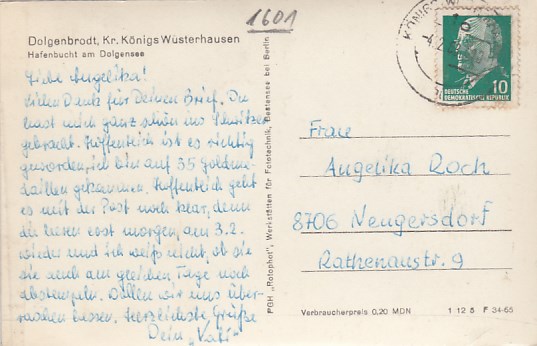 1601
Dolgenbrodt, Kr. Königs Wüsterhausen
Hafenbucht am Dolgensee
Liebe Angelika!
Vielen Dank für Deinen Brief. Du
hast mich ganz schön ins Schwitzen
gebracht. Hoffentlich ist es richtig
geworden, ich bin auf 35 Goldme-
daillen gekommen. Hoffentlich geht
es mit der Post noch klar, denn
die leeren erst morgen, am 3.2.
wieder und ich weiß nicht, ob sie
sie auch am gleichen Tage noch
abstempeln. Wollen wir uns über-
raschen lassen. Herzlichste Grüße
Dein "Vati"
PGH „Rotophot", Werkstätten für Fototechnik, Bestensee bei Berlin
KÖNIGS W
DEUTSCHE
DEMOKRATISCHE REPUBLIK
10
Frau
Angelika Roch
8706 Neugersdorf
Rathenaustr. 9
Verbraucherpreis 0,20 MDN
1 12 5 F 34-65